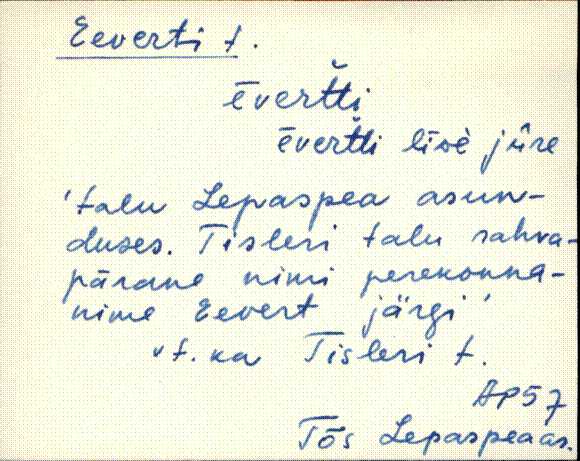 Eeverti t.
ēverťti
ēverťti līsè jūre
'talu Lepaspea asun-
duses. Tisleri talu rahva-
pärane nimi perekonna-
nime Eevert järgi'
vt. ka Tisleri t.
AP57
Tõs Lepaspeaas.